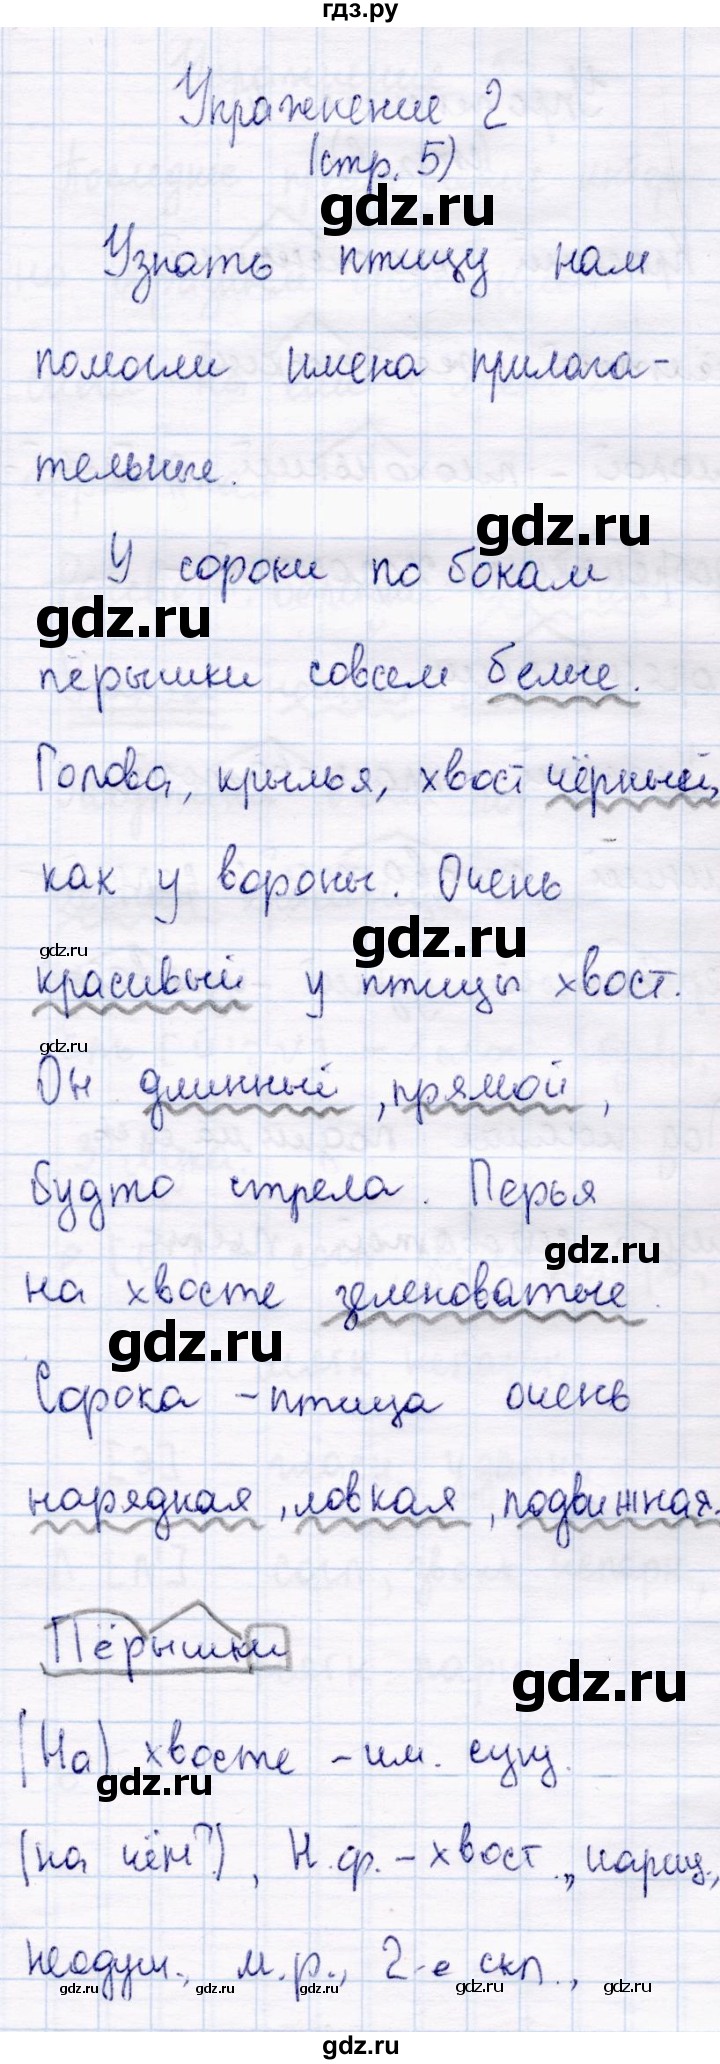 гдз.ру
Упражнение 2
(стр. 5)
gdz.ru
Узнать птицу нам
помогли имена прилага-
тельные.
gdz.ru
У сороки по бокам
gdz.ru
пёрышки совсем белые.
Голова, крылья, хвост чёрный,
как у вороны. Очень
gdz.ru
gdz.ru
красивый у птицы хвост.
gdz.ru
Он длинный, прямой,
будто стрела. Перья
gdz.ru
на хвосте зеленоватые.
gdz.ru
Сорока - птица очень
нарядкая, ловкая, подвижная.
Пёрышки
gdz.ru
(На) хвосте - им. сущ.
gdz.ru
(на чём?), Н.ф. - хвост., нариц.,
неодуш., м.р., 2-е скл.,
gdz.ru gdz.ru gdz.ru gdz.ru gdz.ru
gdz.ru